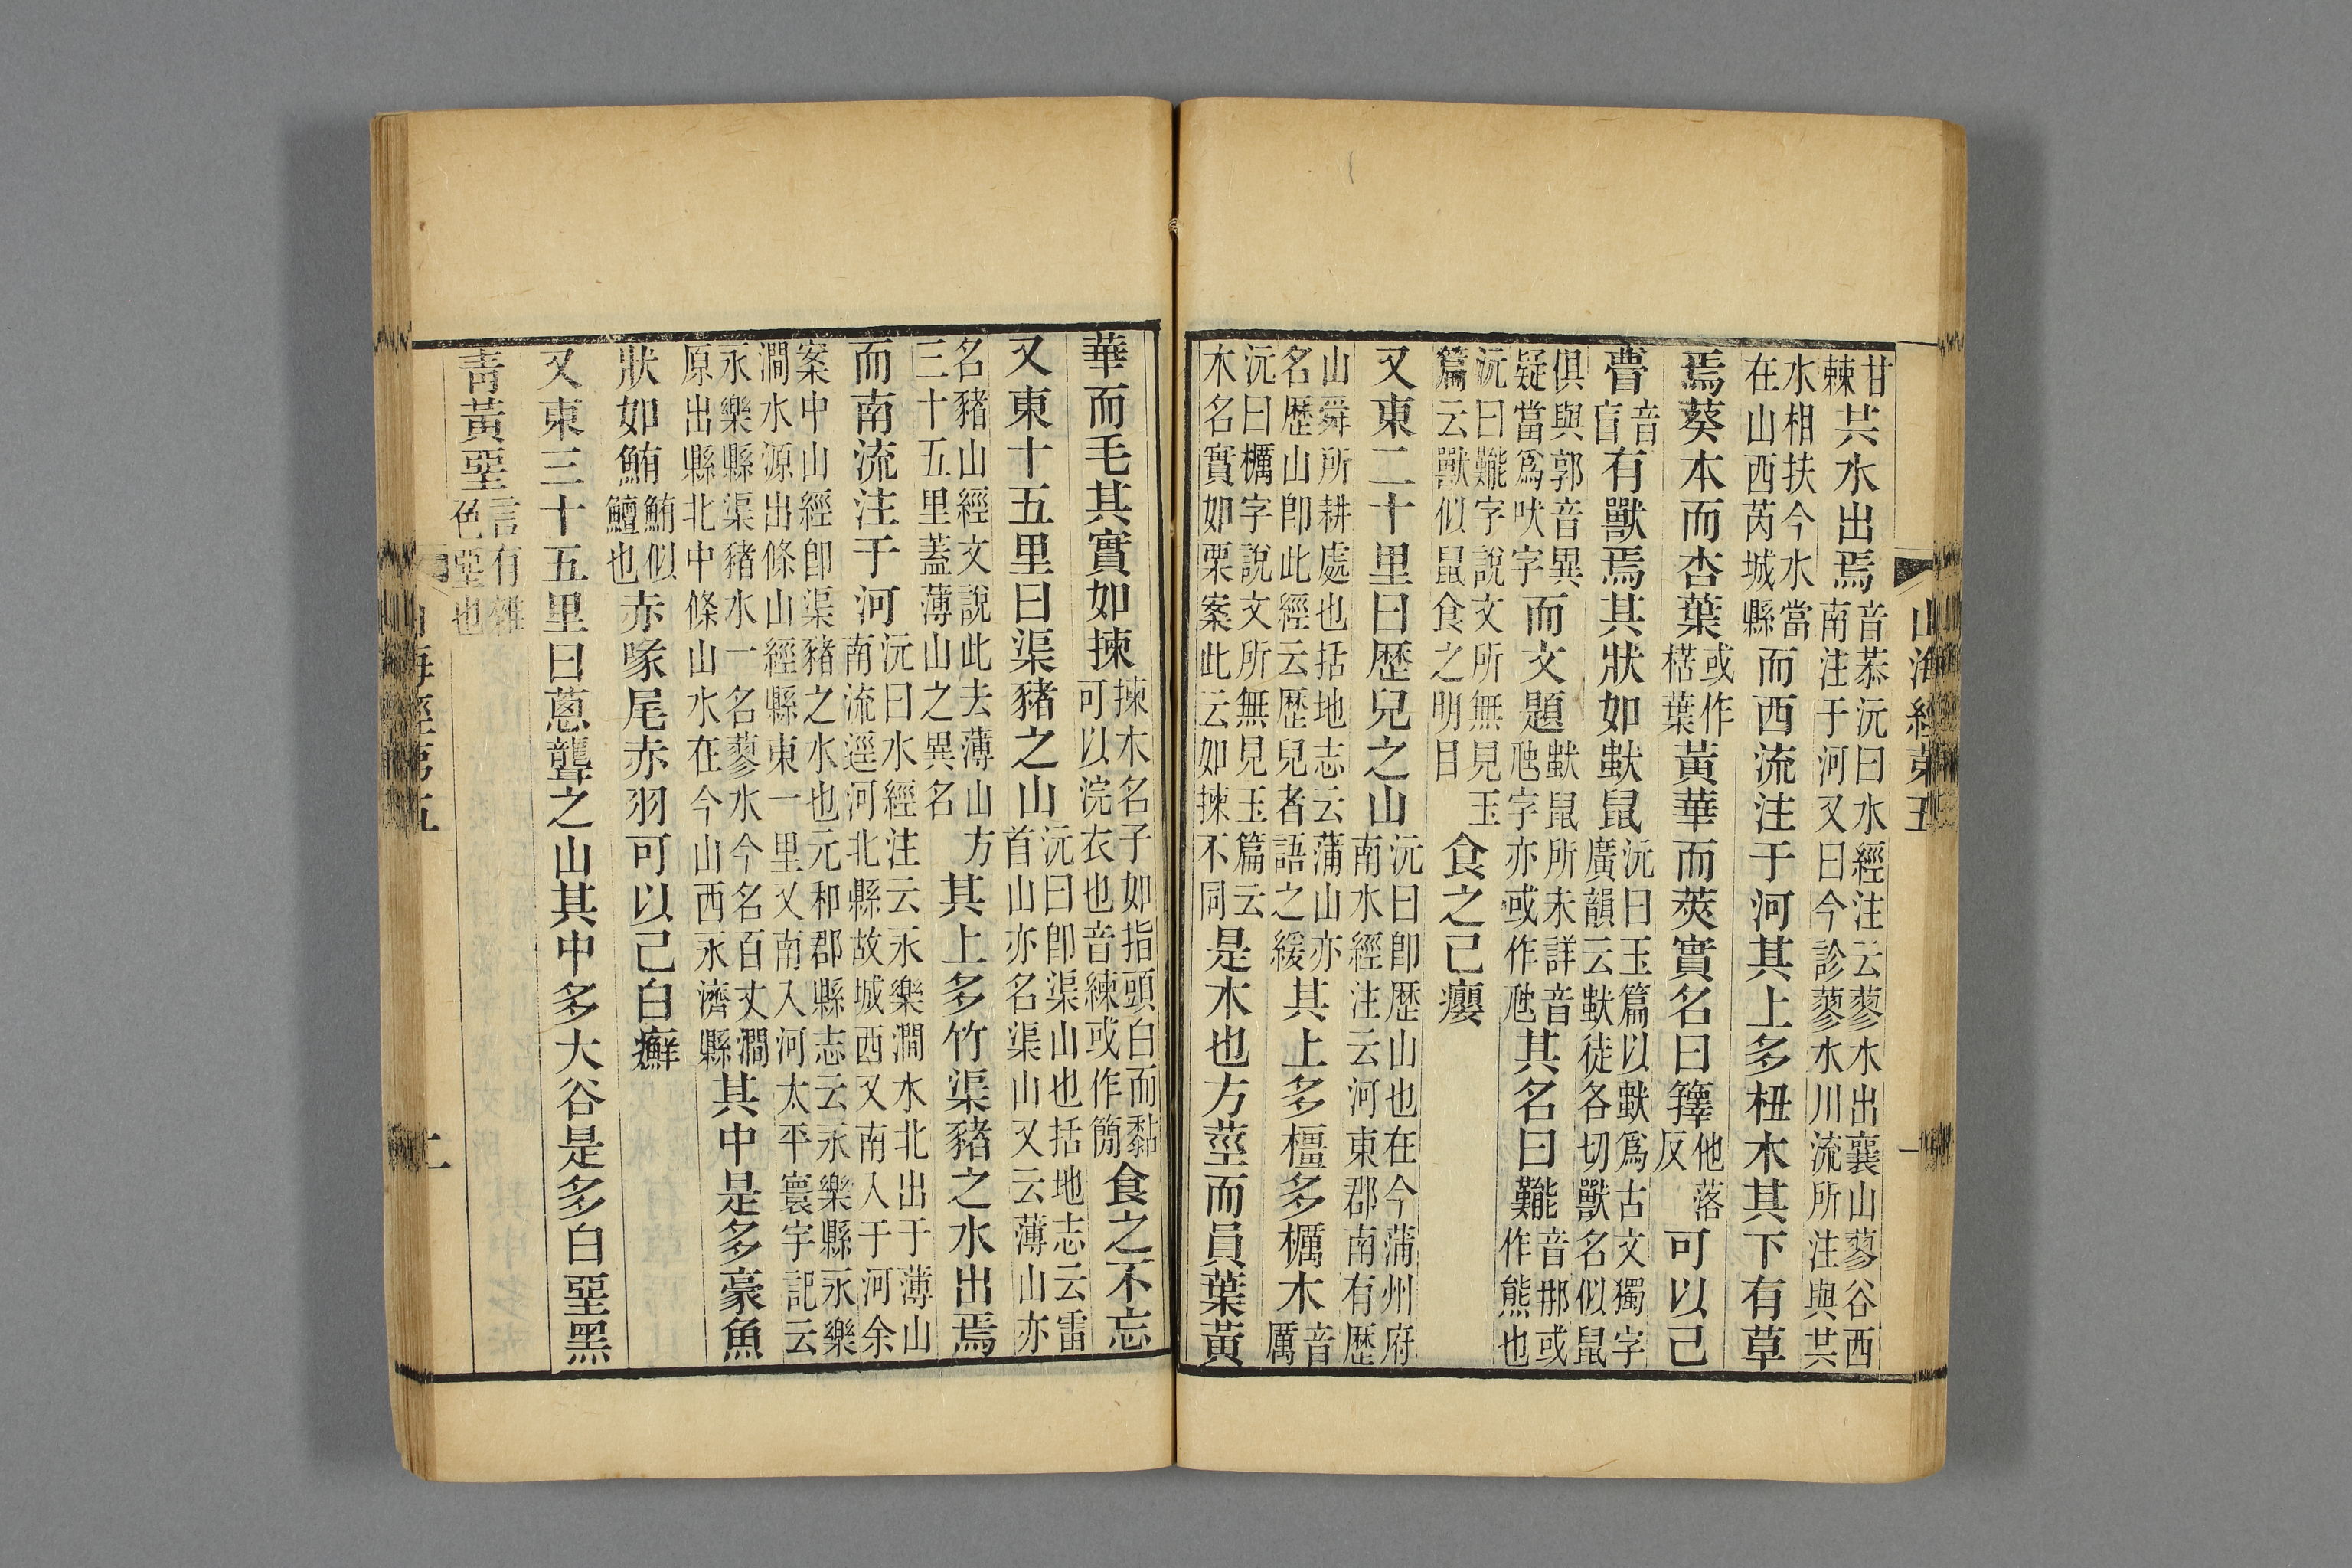 甘棘共水出焉音恭沅曰水經注云蓼水出襄山蓼谷西南注于河又曰今診蓼水川流所注與共
水相扶今水當在山西芮城縣而西流注于河其上多杻木其下有草
焉葵本而杏葉或作楛葉黃華而莢實名曰籜他落反可以已
瞢音盲有獸焉其狀如鼠沅曰玉篇以爲古文獨字廣韻云徒各切獸名似鼠
俱與郭音異疑當爲吠字而文題鼠所未詳音虺字亦或作虺其名曰音那或作熊也
沅曰字說文所無見玉篇云獸似鼠食之明目食之已癭
又東二十里曰歷兒之山沅曰卽歷山也在今蒲州府南水經注云河東郡南有歷
山舜所耕處也括地志云蒲山亦名歷山卽此經云歷兒者語之緩其上多橿多櫔木音厲
沅曰櫔字說文所無見玉篇云木名實如栗案此云如揀不同是木也方莖而員葉黃
山海經第五
一
華而毛其實如揀揀木名子如指頭白而黏可以浣衣也音練或作簡食之不忘
又東十五里曰渠豬之山沅曰卽渠山也括地志云雷首山亦名渠山又云薄山亦
名豬山經文說此去薄山方三十五里蓋薄山之異名其上多竹渠豬之水出焉
而南流注于河沅曰水經注云永樂澗水北出于薄山南流逕河北縣故城西又南入于河余
案中山經卽渠豬之水也元和郡縣志云永樂縣永樂澗水源出條山經縣東一里又南入河太平寰宇記云
永樂縣渠豬水一名蓼水今名百丈澗原出縣北中條山水在今山西永濟縣其中是多豪魚
狀如鮪鮪似鱣也赤喙尾赤羽可以已白癬
又東三十五里曰蔥聾之山其中多大谷是多白堊黑
青黃堊言有雜色堊也
山海經第五
二